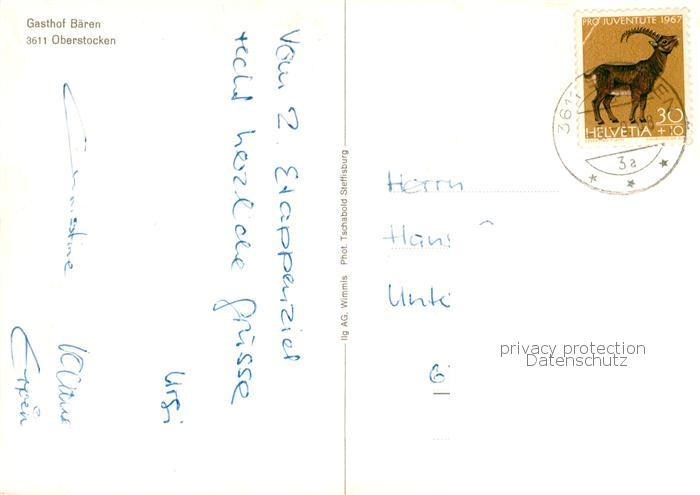 Gasthof Bären
3611 Oberstocken
Vom 2. Etappenziel
recht herzliche Grüsse
Ursi
Ilg AG, Wimmis Phot. Tschabold Steffisburg
PRO JUVENTUTE 1967
30
HELVETIA +10
3611
3a
Herrn
Hans
privacy protection
Datenschutz